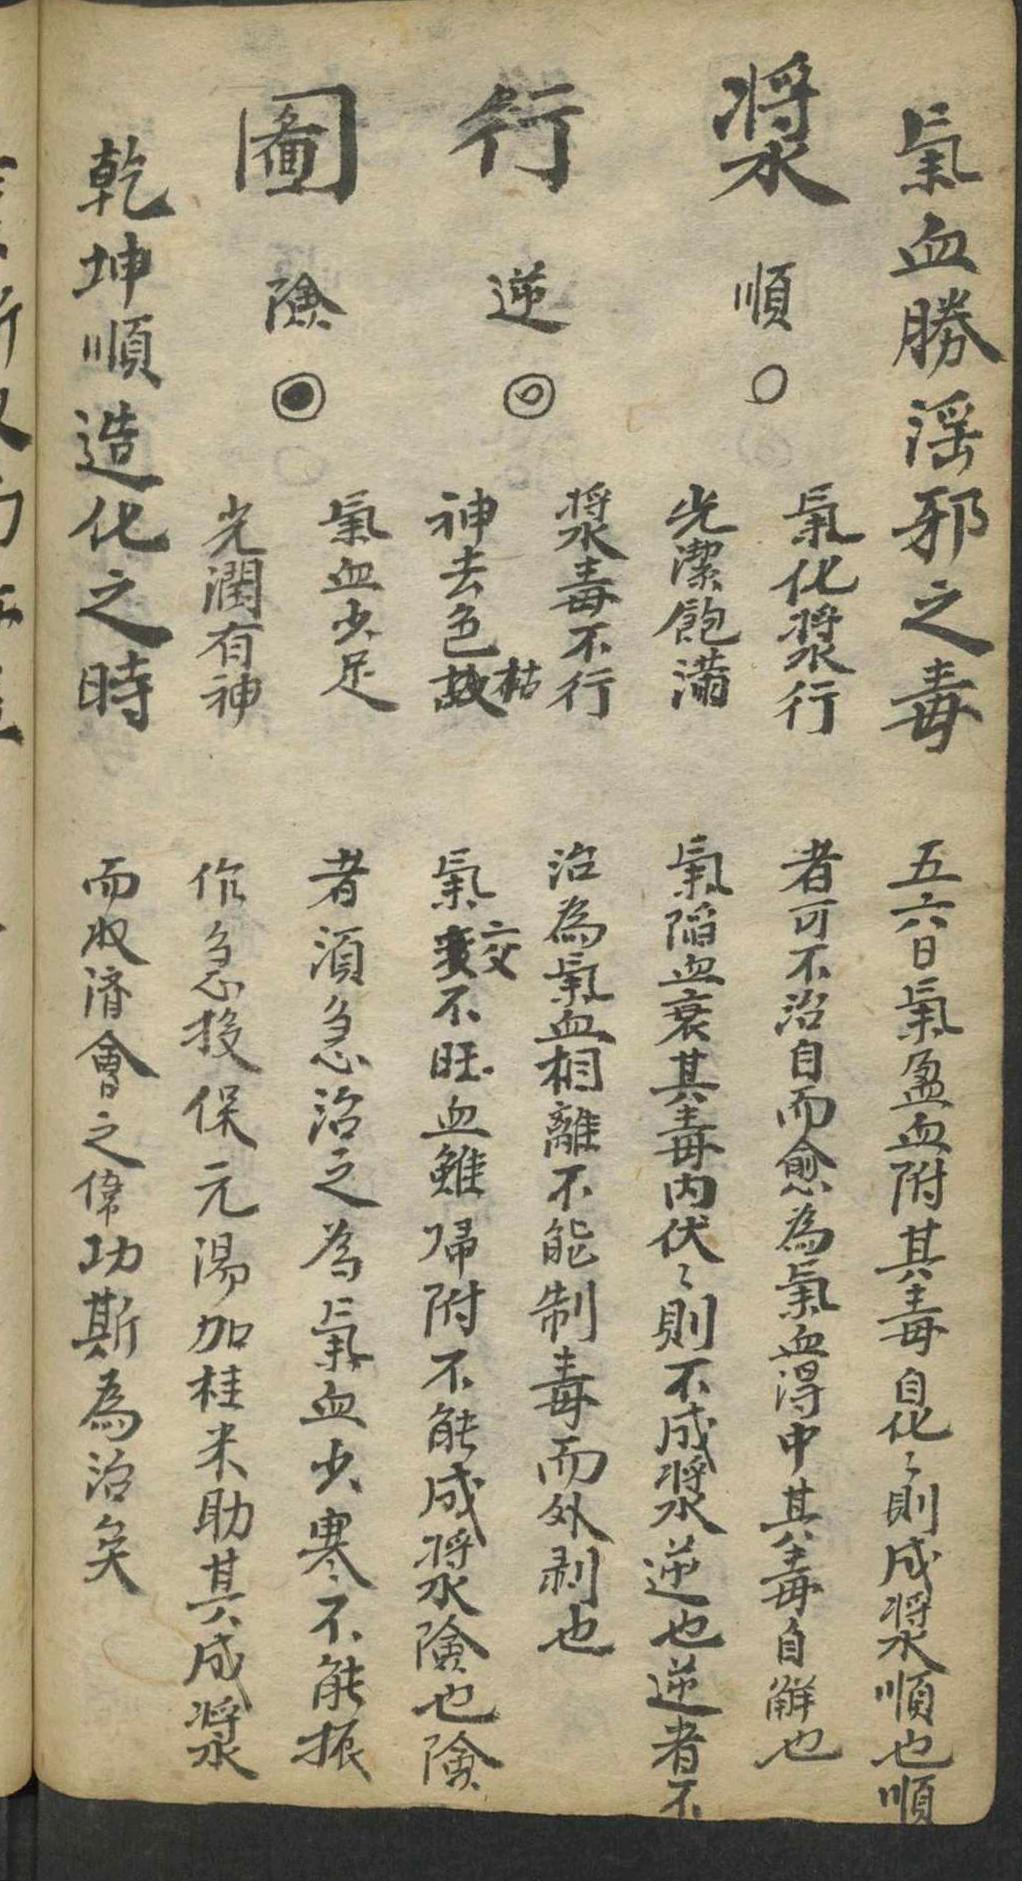 氣血勝滛邪之毒
漿行圖
順○
氣化漿行
光潔飽滿
逆◎
漿毒不行
神去色枯
險◉
氣血少足
光潤有神
乾坤順造化之時
五六日氣盈血附其毒自化〻則成漿順也順
者可不治自而愈為氣血得中其毒自解也
氣陷血衰其毒内伏〻則不成漿逆也逆者不
治為氣血相離不能制毒而外剥也
氣交不旺血雖歸附不能成漿險也險
者須急治之為氣血少寒不能振
作急投保元湯加桂米助其成漿
而收濟會之偉功斯為治矣